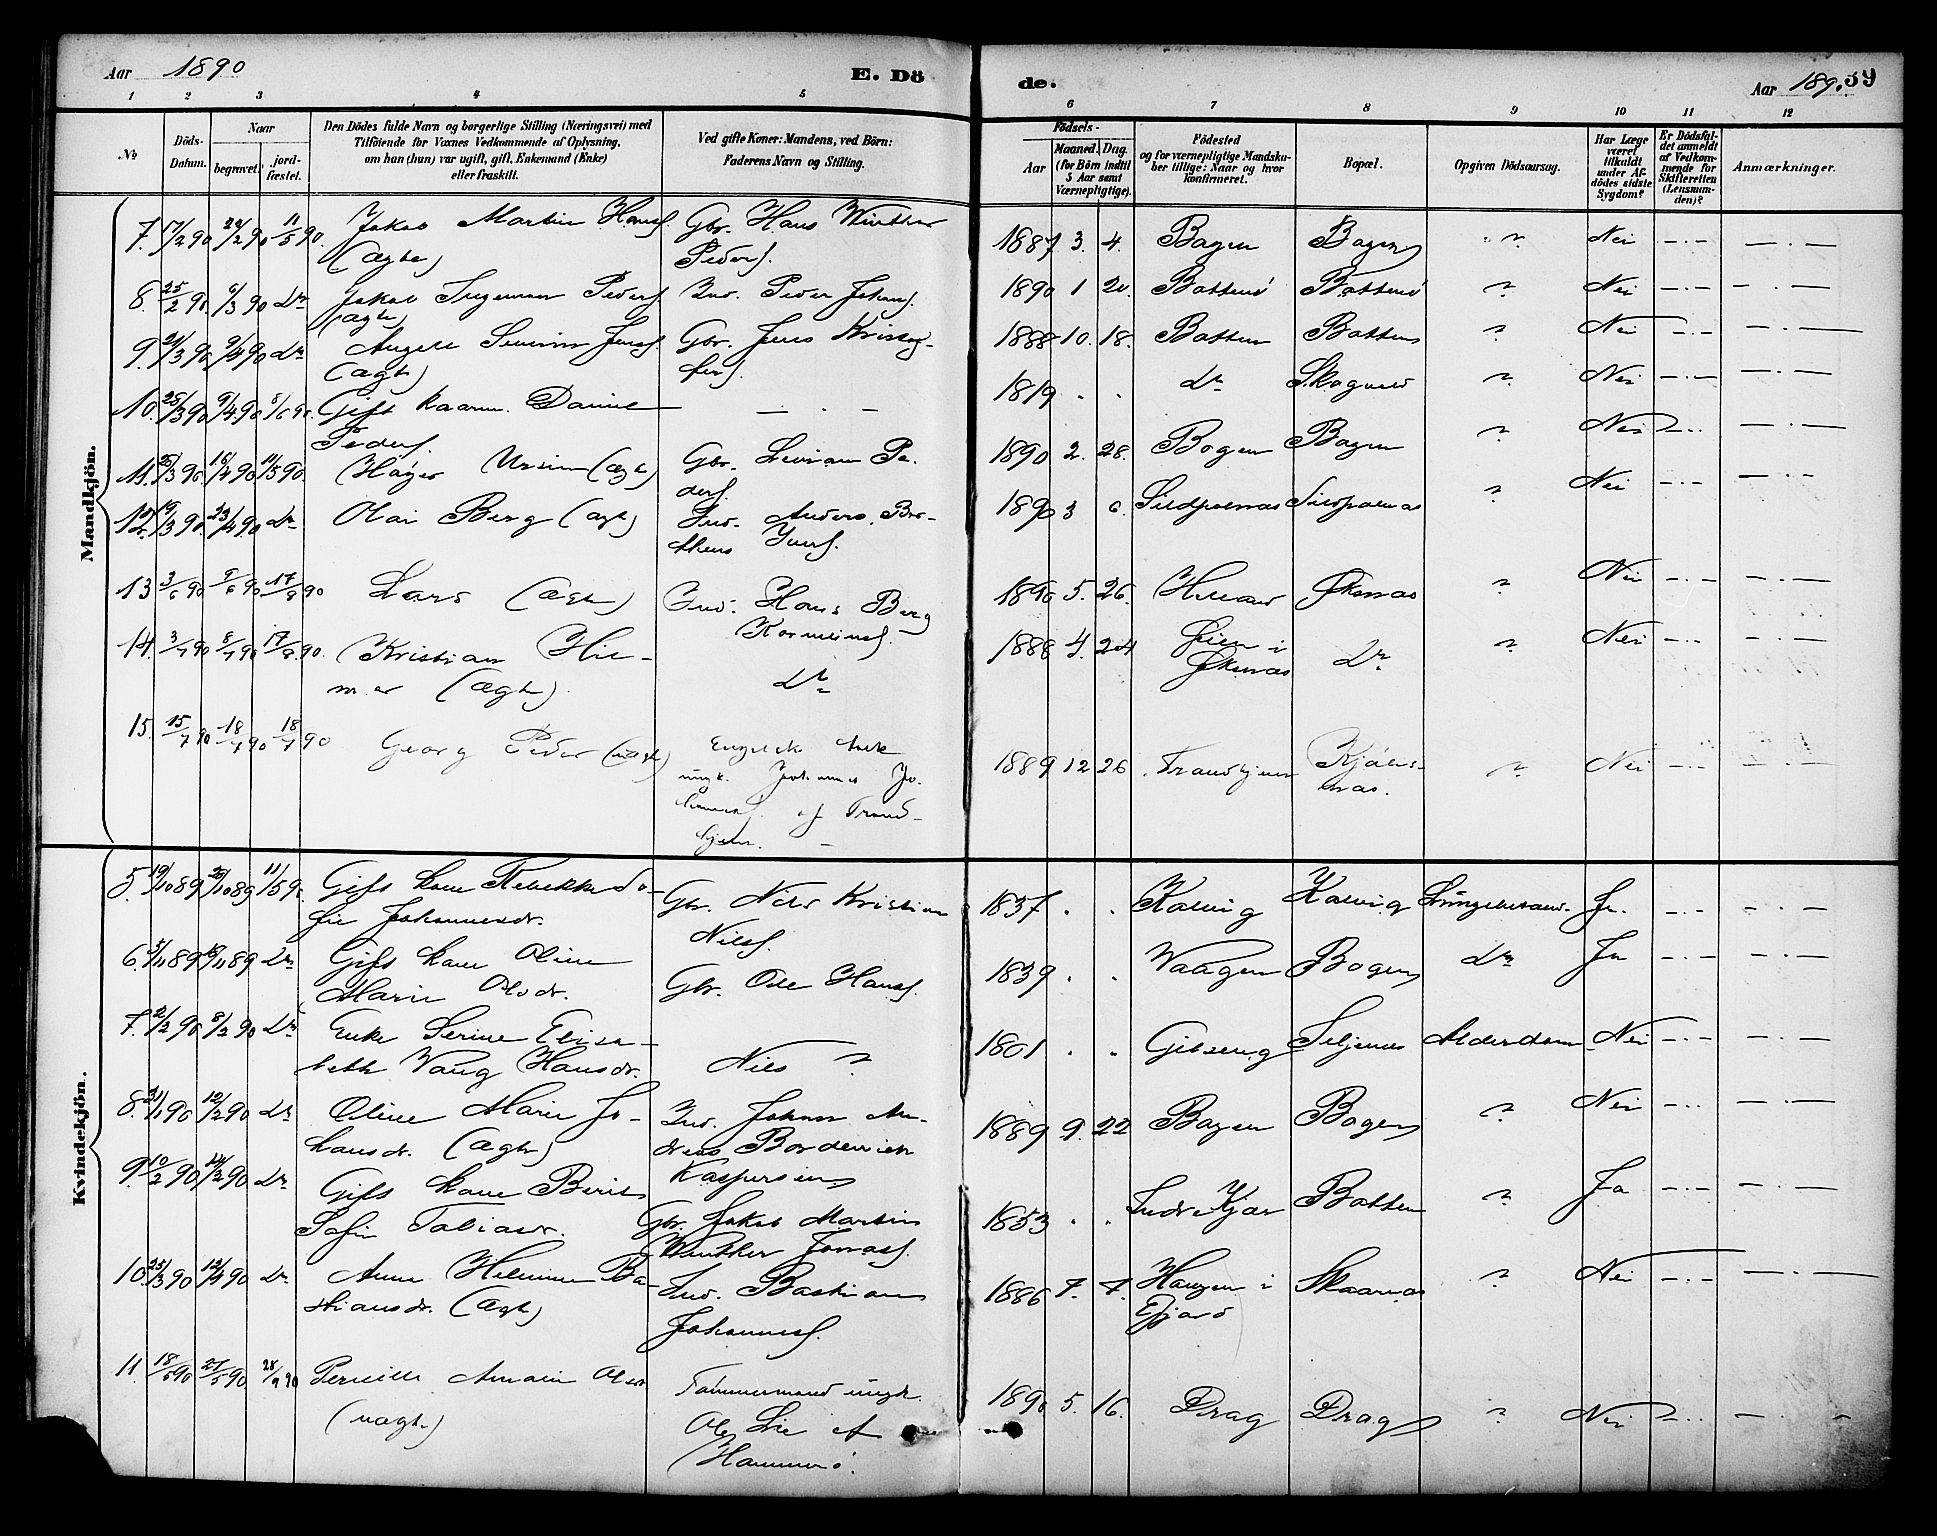 Aar 1890
E. Dö
de.
Aar 189.
39
1 2 3 4 5 6 7 8 9 10 11 12
No
Döds-
Datum.
Naar
begravet.
jord-
fæstet.
Den Dödes fulde Navn og borgerlige Stilling (Næringsvei) med
Tilföiende for Voxnes Vedkommende af Oplysning,
om han (hun) var ugift, gift, Enkemand (Enke)
eller fraskilt.
Ved gifte Koner: Mandens, ved Börn:
Faderens Navn og Stilling.
Födsels-
Aar
Maaned. Dag.
(for Börn indtil
5 Aar samt
Værnepligtige).
Födested
og for værnepligtige Mandska-
ber tillige: Naar og hvor
konfirmeret.
Bopæl.
Opgiven Dödsaarsag.
Har Læge
været
tilkaldt
under Af-
dödes sidste
Sygdom?
Er Dödsfal-
det anmeldt
af Vedkom-
mende for
Skifteretten
(Lensman-
den)?
Anmærkninger.
Mandkjön.
7. 17/2 90 24/2 90 11/5 90. Jakob Martin Hansf. Gbr. Hans Winther 1887 3. 4. Bogen Bogen ? Nei
(Ægte) Pedersf.
8. 25/2 90 6/3 90 Do Jakob Ingeman Pedersf. Ind. Peder Johansf. 1890 1 20. ? Nei
(Ægte)
9. 21/3 90 9/4 90 Do Severin Jensf. Gbr. Jens Kristof- 1888 10. 18. Botten Botten ? Nei
(Ægte) fersf.
10. 25/3 90 9/4 90 8/6 90. Gift kaarm. Daniel 1819 . . Do ? Nei
Pedersf.
11. 25/3 90 16/4 90 11/5 90. Ursin (Ægte) Gbr. Pe- 1890 2. 28. Bogen Bogen ? Nei
dersf.
12. 19/3 90. 23/4 90 Do Olai Berg (Ægte) Ind. Anders 1890 3 6. ? Nei
Iversf.
13 3/6 90 9/6 90 17/8 90 Lars (Ægte) Ind. Hans Berg 1890 5. 26. Øksnæs ? Nei
14. 3/7 90 8/7 90 17/8 90. Kristian Hil- Do 1888 4. 24 i Do ? Nei
mer (Ægte). Øksnæs
15. 15/7 90 18/7 90 18/7 90 Georg Peder (uægte) ungk. Johannes Jo- 1889 12 26 Trondhjem Kjöbs- ? Nei
af Trond- næs.
hjem.
Kvindekjön.
5. 19/10 89 25/10 89 11/5 90 Gift kone Rebekka So- Gbr. Nils Kristian 1837 . . Kalvig Kalvig Ja.
fie Johannesdr. Nilsf.
6. 5/11 89 Do Gift kone Oline Gbr. Ole Hansf. 1839 . . Vaagen Bogen Do Ja
Marie Olsdr.
7. 2/2 90 8/2 90 Do Enke Serine Elisa- Nils ? 1801 . . Seljenes Alderdom Nei
beth Vang Hansdr.
8. 21/1 90 12/2 90 Do Oline Marie Jo- Ind. Johan An- 1889 9. 22 Bogen Bogen ? Nei
hansdr. (Ægte) dreas Borderwich
Kaspersen
9. 10/2 90 14/2 90 Do Gift kone Berit Gbr. Jakob Martin 1853 . . Botten ? Ja
Sofie Tobiasdr. Winther Jonasf.
10. 25/3 90 12/4 90 Do Anne Helmine Ba- Ind. Bastian 1886 7. 7. Haugen i Skaarnæs ? Nei
stiansdr. (Ægte) Johannesf.
11 18/5 90 27/5 90 28/9 90 Pernille Amalie Olsdr. Tömmermand ungk. 1890 5. 16. Drag Drag ? Nei
(uægte) Ole Lie af
Hammerö.